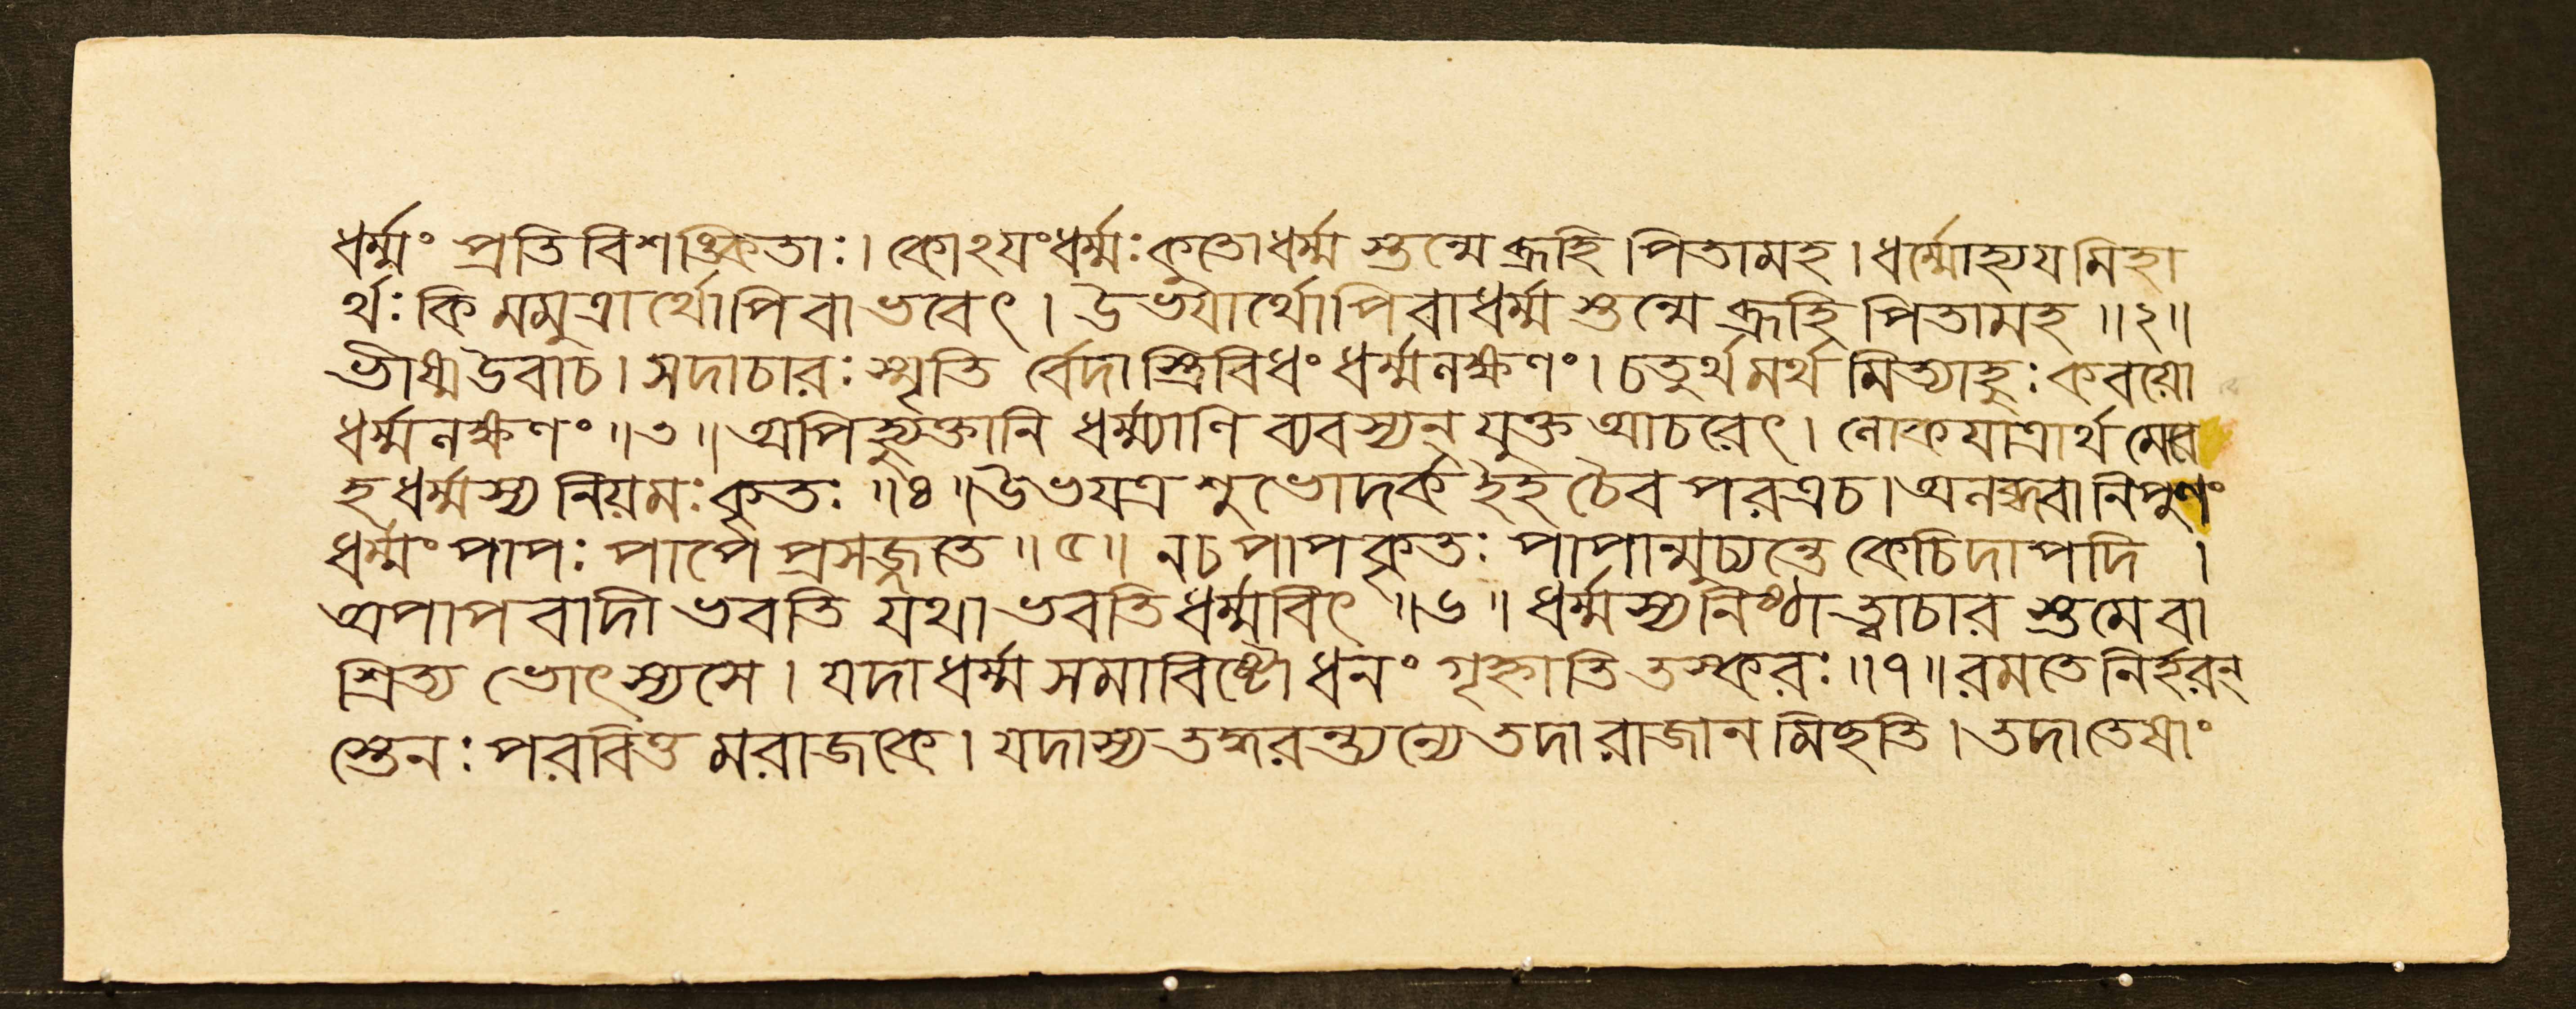 ধর্ম্মং প্রতিবিশঙ্কিতাঃ। কোঽযংধর্ম্মঃ কুতোধর্ম্ম স্তন্মে ব্রূহি পিতামহ। ধর্ম্মোহ্যযমিহা
র্থঃ কিমমুত্রার্থোপিবাভবেৎ। উভযার্থোপিবাধর্ম্ম স্তন্মে ব্রূহি পিতামহ ॥২॥
ভীষ্ম উবাচ। সদাচারঃ স্মৃতি র্বেদাস্ত্রিবিধং ধর্ম্মলক্ষণং। চতুর্থমর্থ মিত্যাহুঃ কবয়ো
ধর্ম্মলক্ষণং ॥৩॥ অপিহ্যুক্তানি ধর্ম্ম্যাণি ব্যবস্যন্ যুক্ত আচরেৎ। লোকযাত্রার্থমেবে
হ ধর্ম্মস্য নিয়মঃ কৃতঃ ॥৪॥ উভযত্র শুভোদর্ক ইহ চৈব পরত্রচ। অলব্ধ্বানিপুণং
ধর্ম্মং পাপঃ পাপে প্রসজ্জতে ॥৫॥ নচ পাপকৃতঃ পাপান্মুচ্যন্তে কেচিদাপদি ।
অপাপবাদী ভবতি যথা ভবতি ধর্ম্মবিৎ ॥৬॥ ধর্ম্মস্যনিষ্ঠা ত্বাচার স্তমেবা
শ্রিত্য ভোৎস্যসে। যদাধর্ম্মসমাবিষ্টো ধনং গৃহ্ণাতি তস্করঃ ॥৭॥ রমতে নির্হরন্
স্তেনঃ পরবিত্তমরাজকে। যদাস্য তহ্মরন্ত্যন্যে তদা রাজানমিছতি। তদাতেষাং